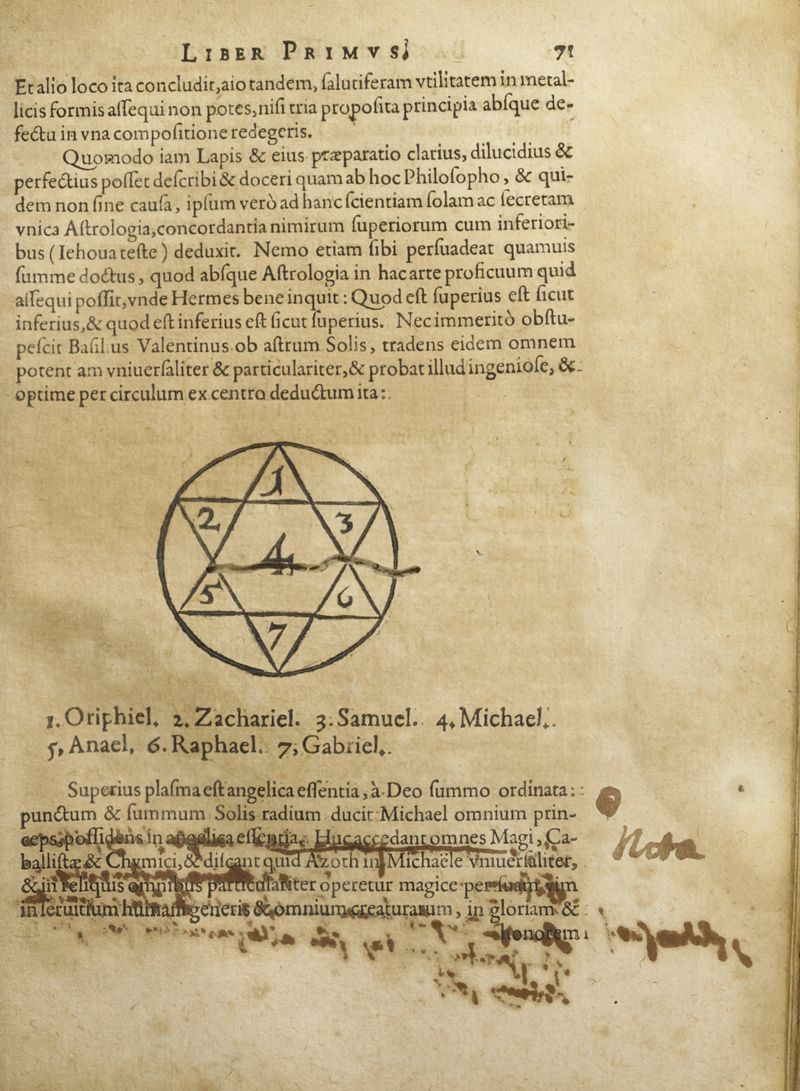 LIBER PRIMVS.
71
Et alio loco ita concludit, aio tandem, ſalutiferam vtilitatem in metal-
licis formis aſſequi non potes, niſi tria propoſita principia abſque de-
fectu in vna compoſitione redegeris.
Quomodo iam Lapis & eius præparatio clarius, dilucidius &
perfectius poſſet deſcribi & doceri quam ab hoc Philoſopho, & qui-
dem non ſine cauſa, ipſum verò ad hanc ſcientiam ſolam ac ſecretam
vnica Aſtrologia, concordantia nimirum ſuperiorum cum inferiori-
bus (Iehoua teſte) deduxit. Nemo etiam ſibi perſuadeat quamuis
ſumme doctus, quod abſque Aſtrologia in hac arte proficuum quid
aſſequi poſſit, vnde Hermes bene inquit: Quod eſt ſuperius eſt ſicut
inferius, & quod eſt inferius eſt ſicut ſuperius. Nec immeritò obſtu-
peſcit Baſilius Valentinus ob aſtrum Solis, tradens eidem omnem
potentiam vniuerſaliter & particulariter, & probat illud ingenioſe, &
optime per circulum ex centro deductum ita:
1
2 3
4
5 6
7
1. Oriphiel. 2. Zachariel. 3. Samuel. 4. Michael.
5, Anael, 6. Raphael. 7, Gabriel.
Superius plaſma eſt angelica eſſentia, à Deo ſummo ordinata:
punctum & ſummum Solis radium ducit Michael omnium prin-
ceps, poſſidens in angelica eſſentia. Huc accedant omnes Magi, Ca-
balliſtæ & Chymici, & diſcant quid Azoth in Michaële vniuerſaliter,
& in reliquis omnibus particulariter operetur magice
in ſeruitium humani generis & omnium creaturarum, in gloriam &
honorem
Nota